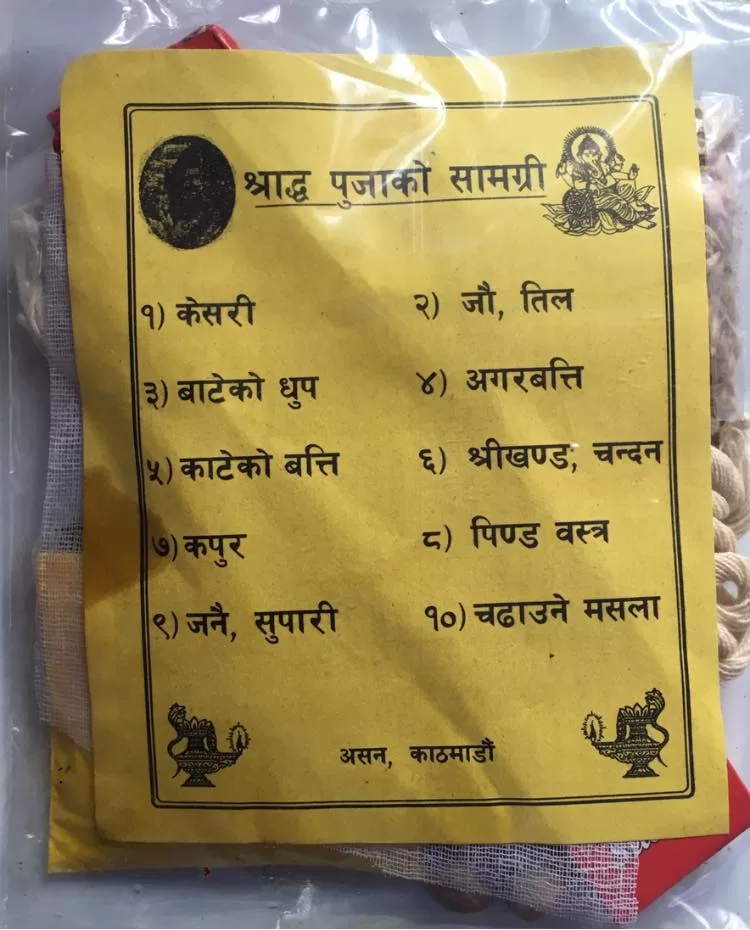 श्राद्ध पुजाको सामग्री
१) केसरी २) जौ, तिल
३) बाटेको धुप ४) अगरबत्ति
५) काटेको बत्ति ६) श्रीखण्ड, चन्दन
७) कपुर ८) पिण्ड वस्त्र
९) जनै, सुपारी १०) चढाउने मसला
असन, काठमाडौं